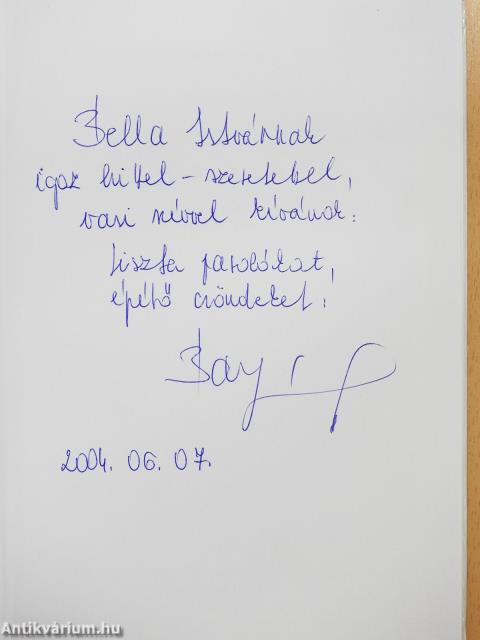 Bella Istvánnak
igaz hittel - szeretettel,
vasi szívvel kívánok:
tiszta parolákat,
építő csöndeket!
Bay
2004. 06. 07.
Antikvárium.hu